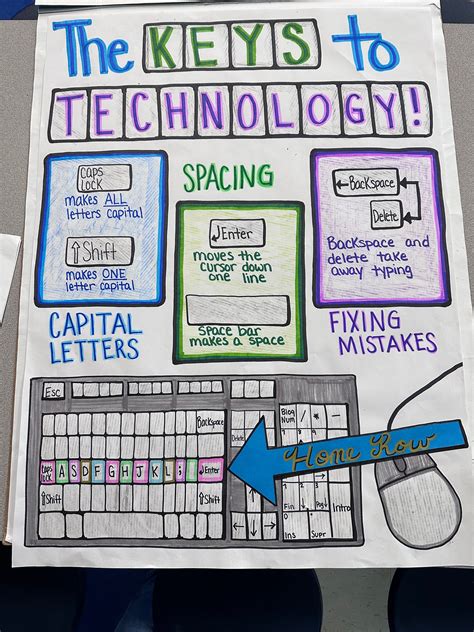 The KEYS to
TECHNOLOGY!
Caps
Lock
makes ALL
letters capital
⇧Shift
makes ONE
letter capital
CAPITAL
LETTERS
SPACING
↲Enter
moves the
cursor down
one line
Space bar
makes a space
←Backspace
Delete
Backspace and
delete take
away typing
FIXING
MISTAKES
Esc
Backspace
Delete
Bloq
Num / * -
Caps
Lock A S D F G H J K L ; Enter
⇧Shift ⇧Shift
Home Row
Fin Pg Intro
Ins Supr